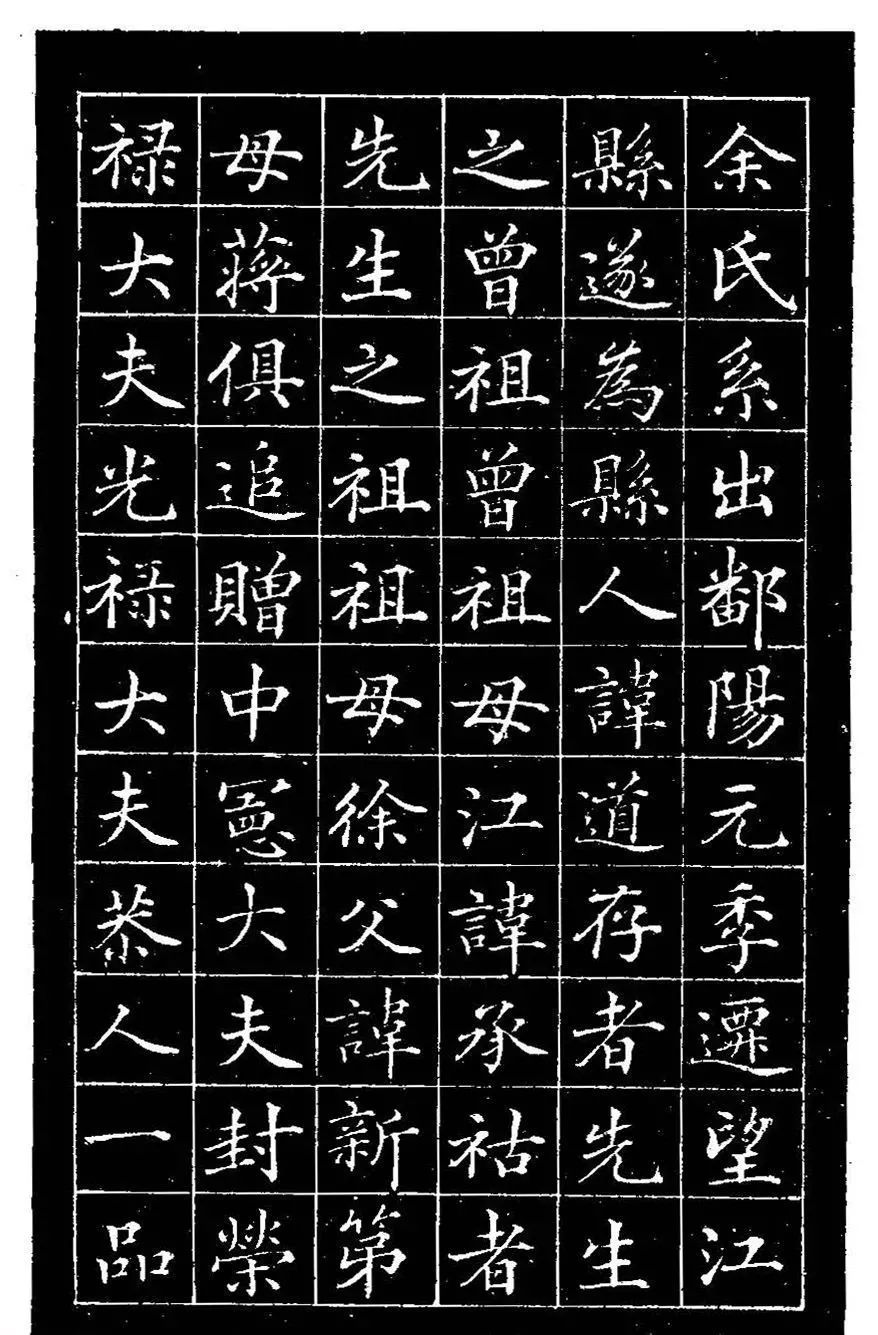 余氏系出鄱陽元季遷望江
縣遂為縣人諱道存者先生
之曾祖曾祖母江諱承祜者
先生之祖祖母徐父諱新第
母蔣俱追贈中憲大夫封榮
禄大夫光禄大夫恭人一品